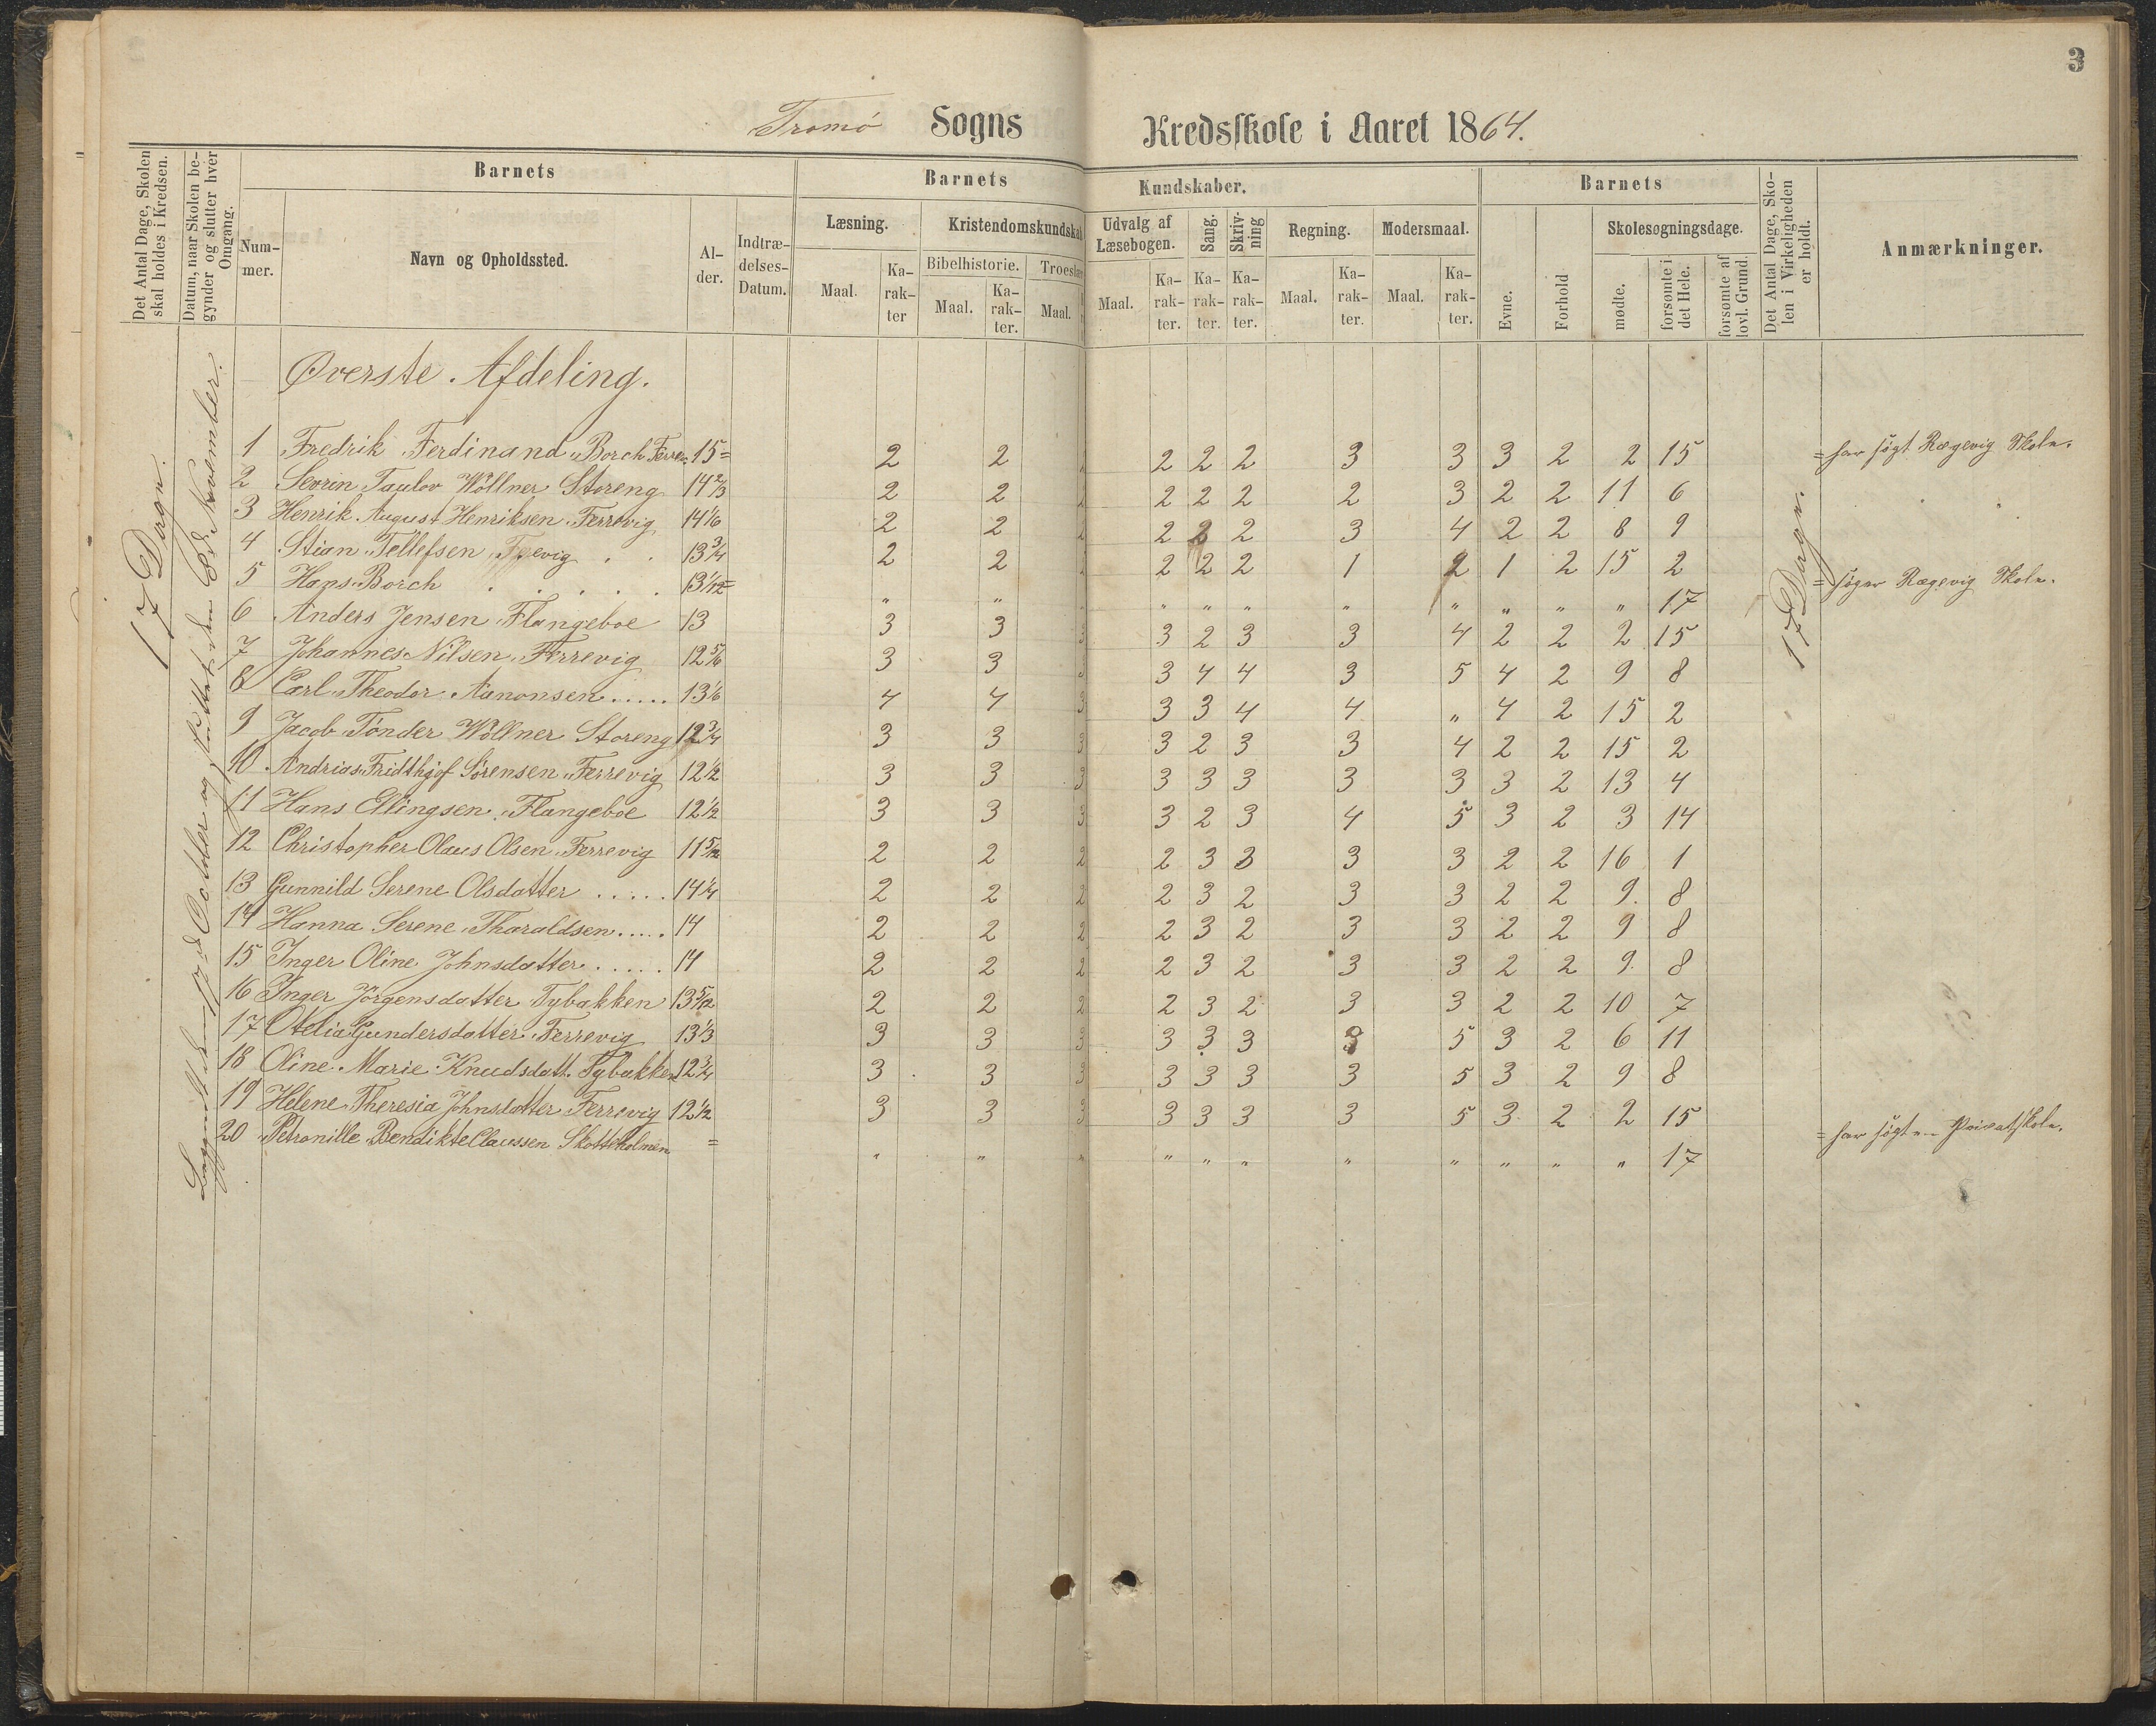 3
Tromø Sogns Kredsskole i Aaret 1864.
Det Antal Dage, Skolen skal holdes i Kredsen.
Datum, naar Skolen begynder og slutter hver Omgang.
Barnets
Num-mer.
Navn og Opholdssted.
Al-der.
Indtræ-delses-Datum.
Barnets Kundskaber.
Læsning.
Maal.
Ka-rak-ter
Kristendomskundskab
Bibelhistorie.
Maal.
Ka-rak-ter.
Troeslær
Maal.
Udvalg af Læsebogen.
Maal.
Ka-rak-ter.
Sang.
Ka-rak-ter.
Skriv-ning
Ka-rak-ter.
Regning.
Maal.
Ka-rak-ter.
Modersmaal.
Maal.
Ka-rak-ter.
Barnets
Evne.
Forhold
Skolesøgningsdage.
mødte.
forsømte i det Hele.
forsømte af lovl. Grund.
Det Antal Dage, Sko-len i Virkeligheden er holdt.
Anmærkninger.
17 Dage.
Begyndt den 17de Octbler og sluttet den 8de November.
17 Dage.
Øverste Afdeling.
1 Fredrik Ferdinand Borch Ferrev. 15= 2 2 2 2 2 2 3 3 3 2 2 15 = har søgt Rægevig Skole.
2 Sevrin Taulov Wöllner Storeng 14 2/3 2 2 2 2 2 2 2 3 2 2 11 6
3 Henrik August Henriksen Ferrevig 14 1/6 2 2 2 2 2 2 3 4 2 2 8 9
4 Stian Tellefsen Færevig . . 13 3/4 2 2 2 2 2 2 1 2 1 2 15 2
5 Hans Borch . . . . . 13 1/12= " " " " " " " " " " " 17 = søger Rægevig Skole.
6 Anders Jensen Flangeboe 13 3 3 3 3 2 3 3 4 2 2 2 15
7 Johannes Nilsen Ferrevig 12 5/6 3 3 3 3 4 4 3 5 4 2 9 8
8 Carl Theodor Aanonsen ..... 13 1/6 4 4 3 3 3 4 4 " 4 2 15 2
9 Jacob Tønder Wöllner Storeng 12 3/4 3 3 3 3 2 3 3 4 2 2 15 2
10 Andrias Fridthjof Sørensen Ferrevig 12 1/2 3 3 3 3 3 3 3 3 3 2 13 4
11 Hans Ellingsen Flangeboe 12 1/2 3 3 3 3 2 3 4 5 3 2 3 14
12 Christopher Olaus Olsen Ferrevig 11 5/12 2 2 2 2 3 3 3 3 2 2 16 1
13 Gunnild Serene Olsdatter ..... 14 1/4 2 2 2 2 3 2 3 3 2 2 9 8
14 Hanna Serene Tharaldsen ..... 14 2 2 2 2 3 2 3 3 2 2 9 8
15 Inger Oline Johnsdatter ..... 14 2 2 2 2 3 2 3 3 2 2 9 8
16 Inger Jørgensdatter Tybakken 13 5/12 2 2 2 2 3 2 3 3 2 2 10 7
17 Otelia Gundersdatter Ferrevig 13 1/3 3 3 3 3 3 3 3 5 3 2 6 11
18 Oline Marie Knudsdatt. Tybakken 12 3/4 3 3 3 3 3 3 3 5 3 2 9 8
19 Helene Theresia Johnsdatter Ferrevig 12 1/2 3 3 3 3 3 3 3 5 3 2 2 15
20 Petronille Bendikte Claussen Skottholmen = " " " " " " " " " " " 17 = har søgt en Privatskole.